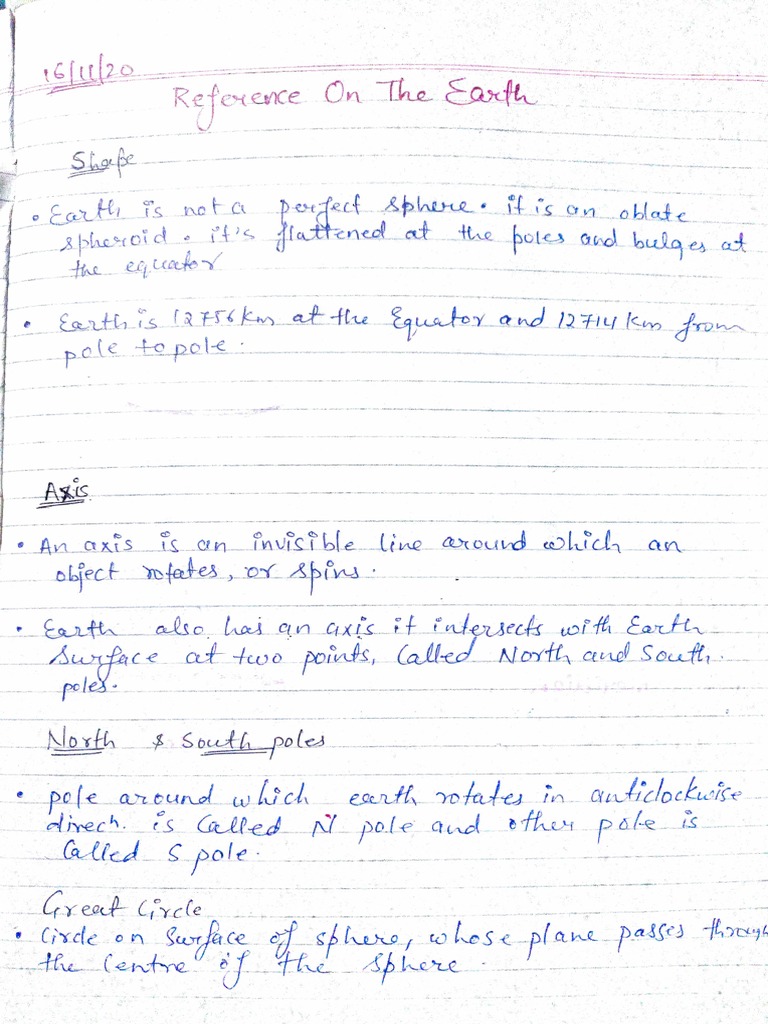 16/11/20
Reference On The Earth
Shape
• Earth is not a perfect sphere. it is an oblate
spheroid. it's flattened at the poles and bulges at
the equator
• Earth is 12756 km at the Equator and 12714 km from
pole to pole.
Axis
• An axis is an invisible line around which an
object rotates, or spins.
• Earth also has an axis it intersects with Earth
Surface at two points, Called North and South.
poles.
North & South poles
• pole around which earth rotates in anticlockwise
direcn. is Called N pole and other pole is
Called S pole.
Great Circle
• Circle on Surface of sphere, whose plane passes through
the Centre of the sphere.